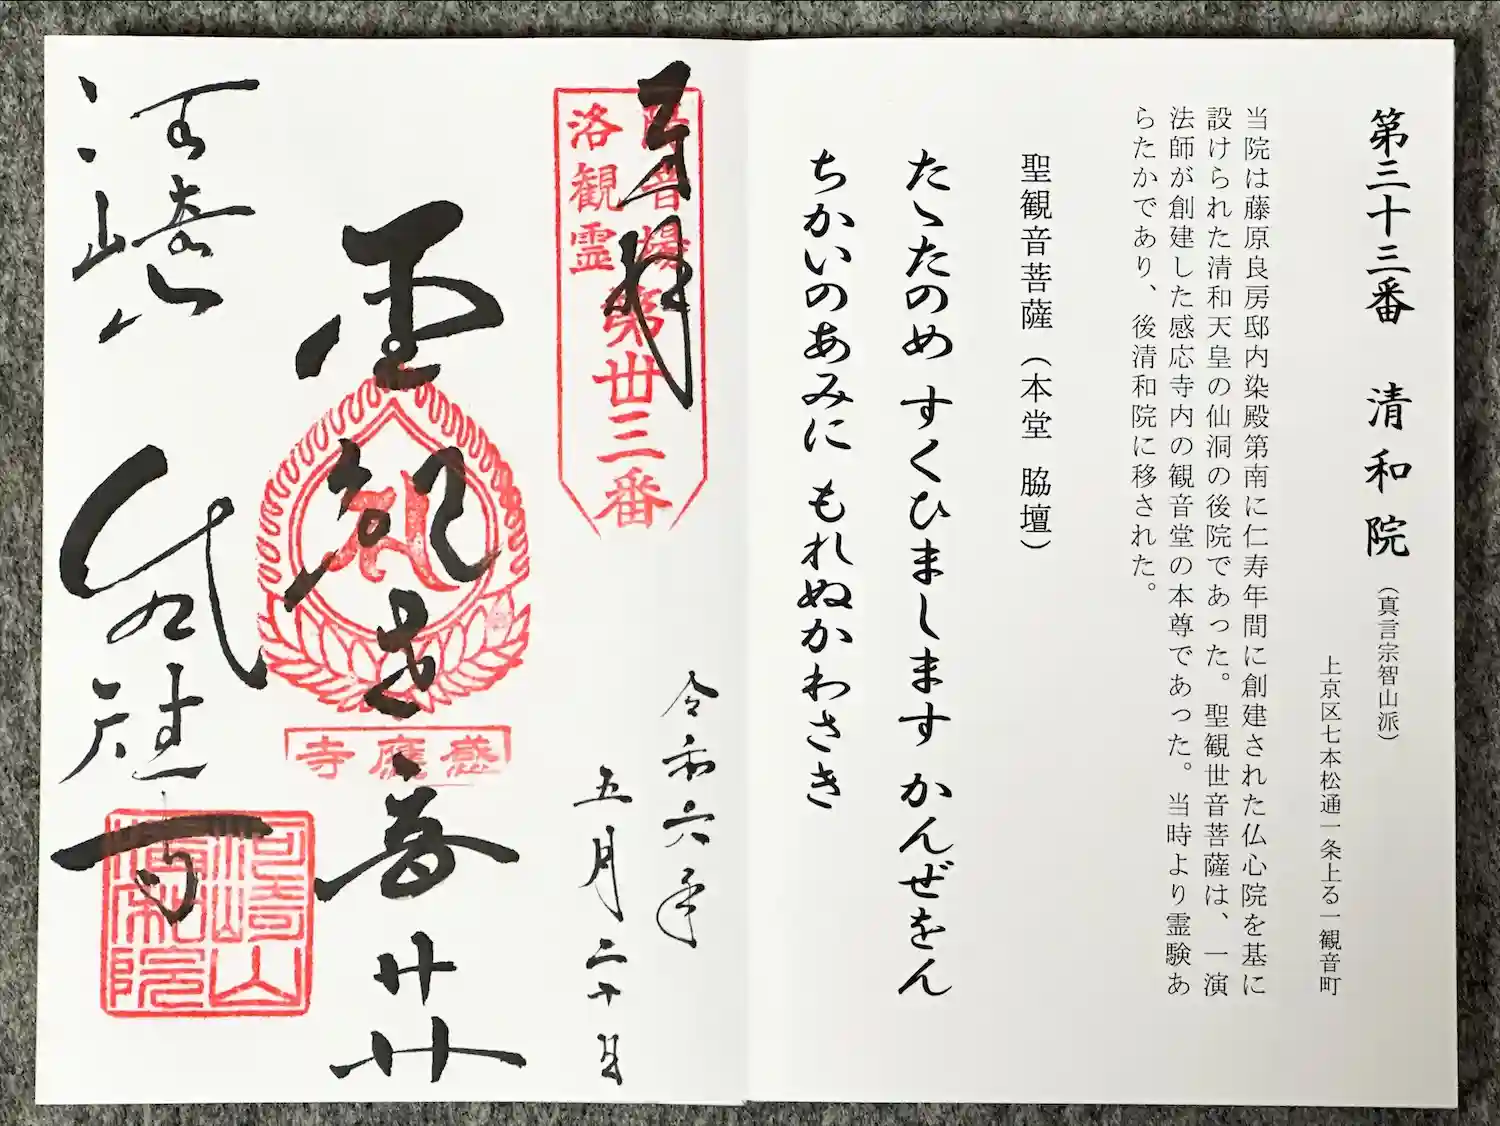 第三十三番 清和院（真言宗智山派）
上京区七本松通一条上る一観音町
当院は藤原良房邸内染殿第南に仁寿年間に創建された仏心院を基に
設けられた清和天皇の仙洞の後院であった。聖観世音菩薩は、一演
法師が創建した感応寺内の観音堂の本尊であった。当時より霊験あ
らたかであり、後清和院に移された。
聖観音菩薩（本堂 脇壇）
たゝたのめ すくひまします かんぜをん
ちかいのあみに もれぬかわさき
奉拝
洛観霊
第卅三番
令和六年
五月二十日
感應寺
河崎山
清和院